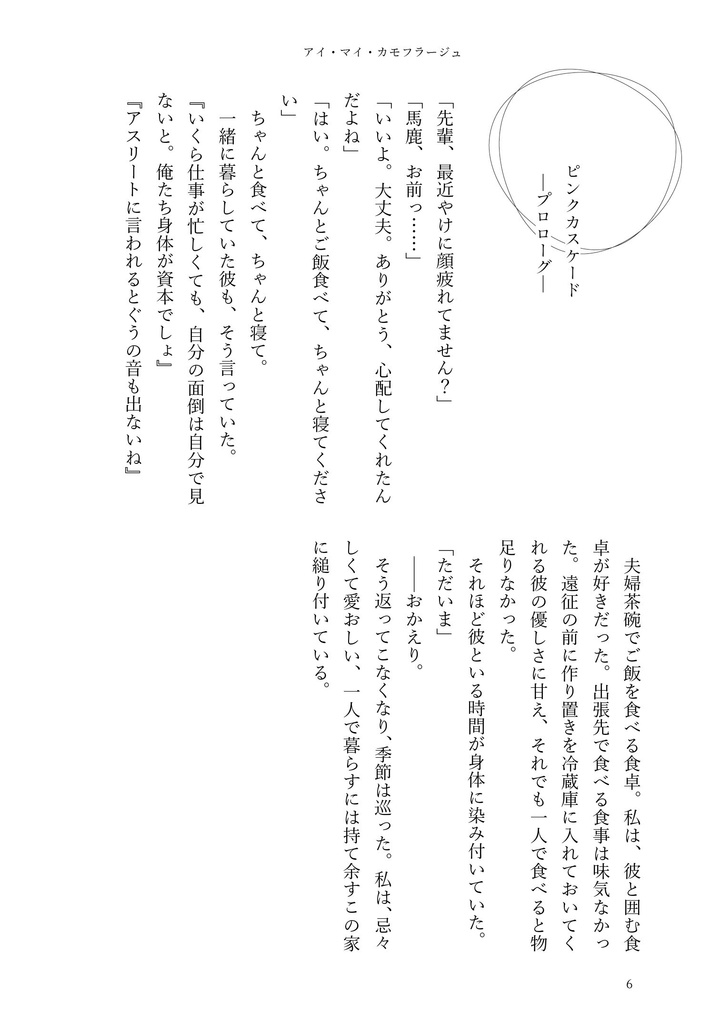 アイ・マイ・カモフラージュ
ピンクカスケード
―プロローグ―
「先輩、最近やけに顔疲れてません？」
「馬鹿、お前っ……」
「いいよ。大丈夫。ありがとう、心配してくれたん
だよね」
「はい。ちゃんとご飯食べて、ちゃんと寝てくださ
い」
ちゃんと食べて、ちゃんと寝て。
一緒に暮らしていた彼も、そう言っていた。
『いくら仕事が忙しくても、自分の面倒は自分で見
ないと。俺たち身体が資本でしょ』
『アスリートに言われるとぐうの音も出ないね』
夫婦茶碗でご飯を食べる食卓。私は、彼と囲む食
卓が好きだった。出張先で食べる食事は味気なかっ
た。遠征の前に作り置きを冷蔵庫に入れておいてく
れる彼の優しさに甘え、それでも一人で食べると物
足りなかった。
それほど彼といる時間が身体に染み付いていた。
「ただいま」
――おかえり。
そう返ってこなくなり、季節は巡った。私は、忌々
しくて愛おしい、一人で暮らすには持て余すこの家
に縋り付いている。
6